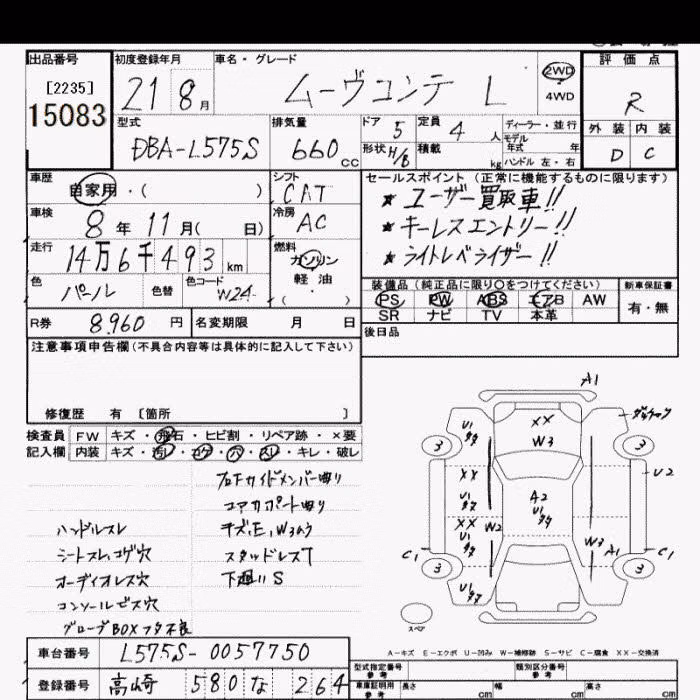 出品番号 初度登録年月 車名・グレード 評価点
[2235] 21 8月 ムーヴコンテ L 2WD 4WD R
15083
型式 排気量 ドア 5 定員 4人 ディーラー・並行 外装 内装
DBA-L575S 660cc 形状 H/B 積載 kg モデル年式 年 ハンドル 左・右 D C
車歴 シフト セールスポイント (正常に機能するものに限ります)
自家用・( ) CAT ★ユーザー買取車!!
車検 冷房 ★キーレスエントリー!!
8年11月( 日) AC ★ライトレベライザー!!
走行 燃料
14万6千493km ガソリン
軽油
( )
色 色替 色コード 装備品 (純正品に限り○をつけてください) 新車保証書
パール W24 PS PW ABS エアB AW 有・無
SR ナビ TV 本革
R券 8.960円 名変期限 月 日 後日品
注意事項申告欄(不具合内容等は具体的に記入して下さい)
修復歴 有 [箇所 ]
検査員 FW キズ・飛石・ヒビ割・リペア跡・×要
記入欄 内装 キズ・汚レ・コゲ・穴・スレ・キレ・破レ
コアサポート曲り
ハンドルスレ キズ,E,W3ムラ
シートスレ,コゲ穴 スタッドレスT
オーディオレス穴 下廻りS
コンソールビス穴
グローブBOXフタ不良
A1
U1 XX
3 W3 3
XX U2
U1 A2
XX W2 U1
U1 W3 A1
C1 C1
3 3
U1
スペア
A-キズ E-エクボ U-凹み W-補修跡 S-サビ C-腐食 XX-交換済
車台番号 L575S-0057750 型式指定番号 参考 類別区分番号 参考
登録番号 高崎 580 な 264 車庫証明用 参考 長さ cm 幅 cm 高さ cm